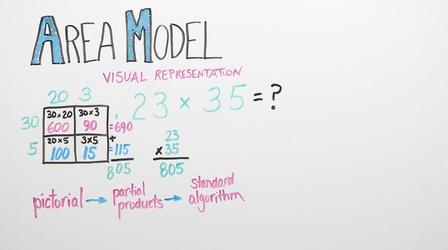 AREA MODEL
VISUAL REPRESENTATION
20 3
23 × 35 = ?
30
30×20 30×3
600 90 =690
+
5
20×5 3×5
100 15 =115
805
23
×35
805
pictorial → partial products → standard algorithm